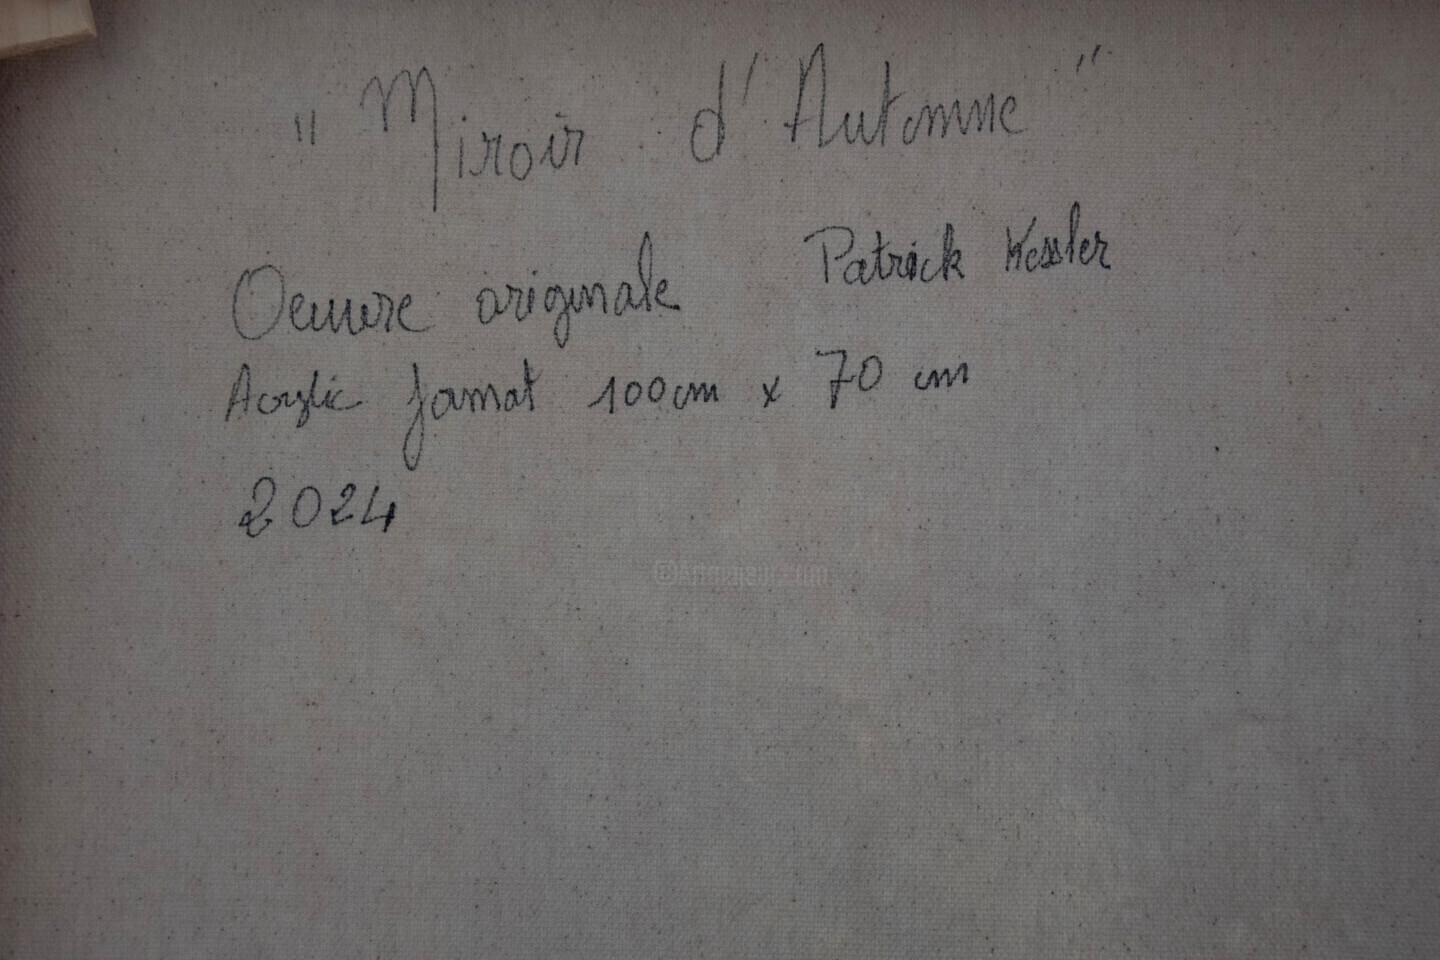 "Miroir d'Automne"
Oeuvre originale Patrick Kessler
Acrylic format 100cm x 70 cm
2024
©Artmajeur.com